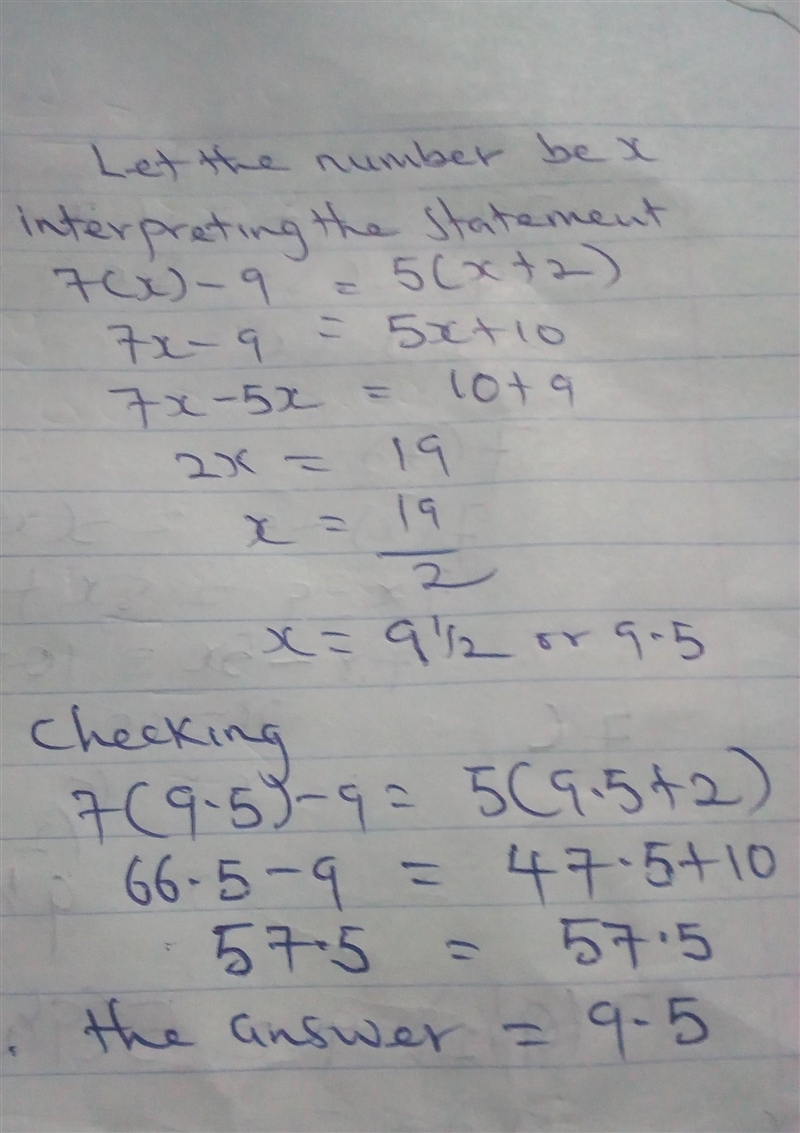 Let the number be x
interpreting the statement
7(x) - 9 = 5(x+2)
7x - 9 = 5x+10
7x - 5x = 10+9
2x = 19
x = 19
2
x = 9 1/2 or 9.5
Checking
7(9.5) - 9 = 5(9.5+2)
66.5 - 9 = 47.5+10
57.5 = 57.5
. the answer = 9.5